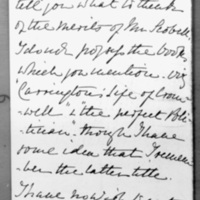 tell you what to think
of the merits of Mr Scobell
I do not possess the books
which you mention. viz
"Carrington's life of Crom-
well" & "the perfect Poli-
tician" though I have
some idea that I remem-
ber the latter title.
I have now